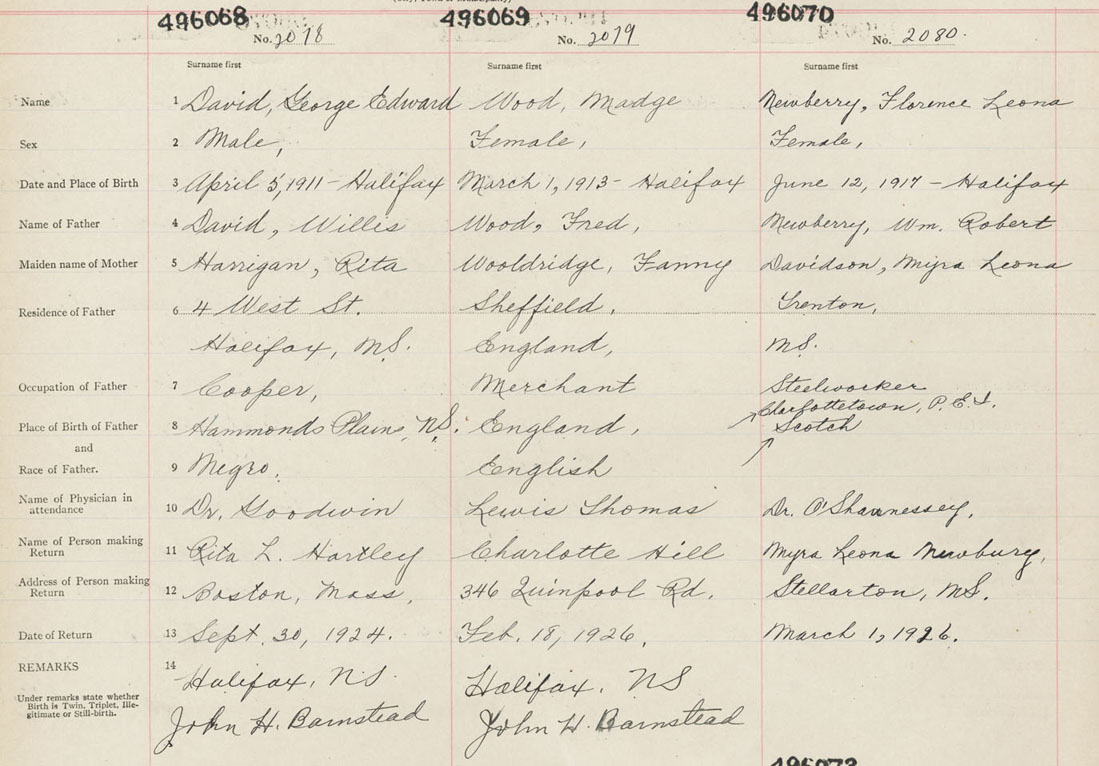 (City, Town or Municipality)
496068 496069 496070
No. 2078 No. 2079 No. 2080.
Surname first Surname first Surname first
Name 1 David, George Edward Wood, Madge Newberry, Florence Leona
Sex 2 Male, Female, Female,
Date and Place of Birth 3 April 5, 1911 - Halifax March 1, 1913 - Halifax June 12, 1917 - Halifax
Name of Father 4 David, Willis Wood, Fred, Newberry, Wm. Robert
Maiden name of Mother 5 Harrigan, Rita Wooldridge, Fanny Davidson, Myra Leona
Residence of Father 6 4 West St. Sheffield, Trenton,
Halifax, N.S. England, N.S.
Occupation of Father 7 Cooper, Merchant Steelworker
Charlottetown, P.E.I.
Place of Birth of Father 8 Hammonds Plains, N.S. England, Scotch
and
Race of Father. 9 Negro, English
Name of Physician in
attendance 10 Dr. Goodwin Lewis Thomas Dr. O'Shaunnessey,
Name of Person making
Return 11 Rita L. Hartley Charlotte Hill Myra Leona Newbury,
Address of Person making
Return 12 Boston, Mass, 346 Quinpool Rd. Stellarton, N.S.
Date of Return 13 Sept. 30, 1924. Feb. 18, 1926, March 1, 1926.
REMARKS 14 Halifax, NS. Halifax, NS
Under remarks state whether
Birth is Twin, Triplet, Ille-
gitimate or Still-birth.
John H. Barnstead John H. Barnstead